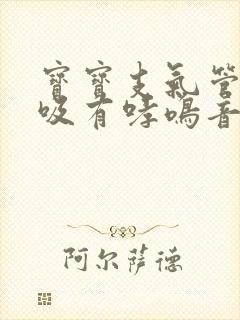 寶寶支氣管
吸有哮鳴音
阿尔萨德